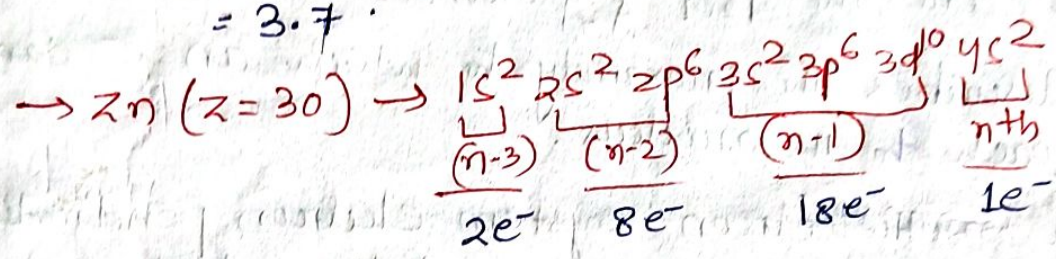 = 3.7
→ Zn (Z=30) → 1s² 2s² 2p⁶ 3s² 3p⁶ 3d¹⁰ 4s²
(n-3) (n-2) (n-1) nth
2e⁻ 8e⁻ 18e⁻ 1e⁻